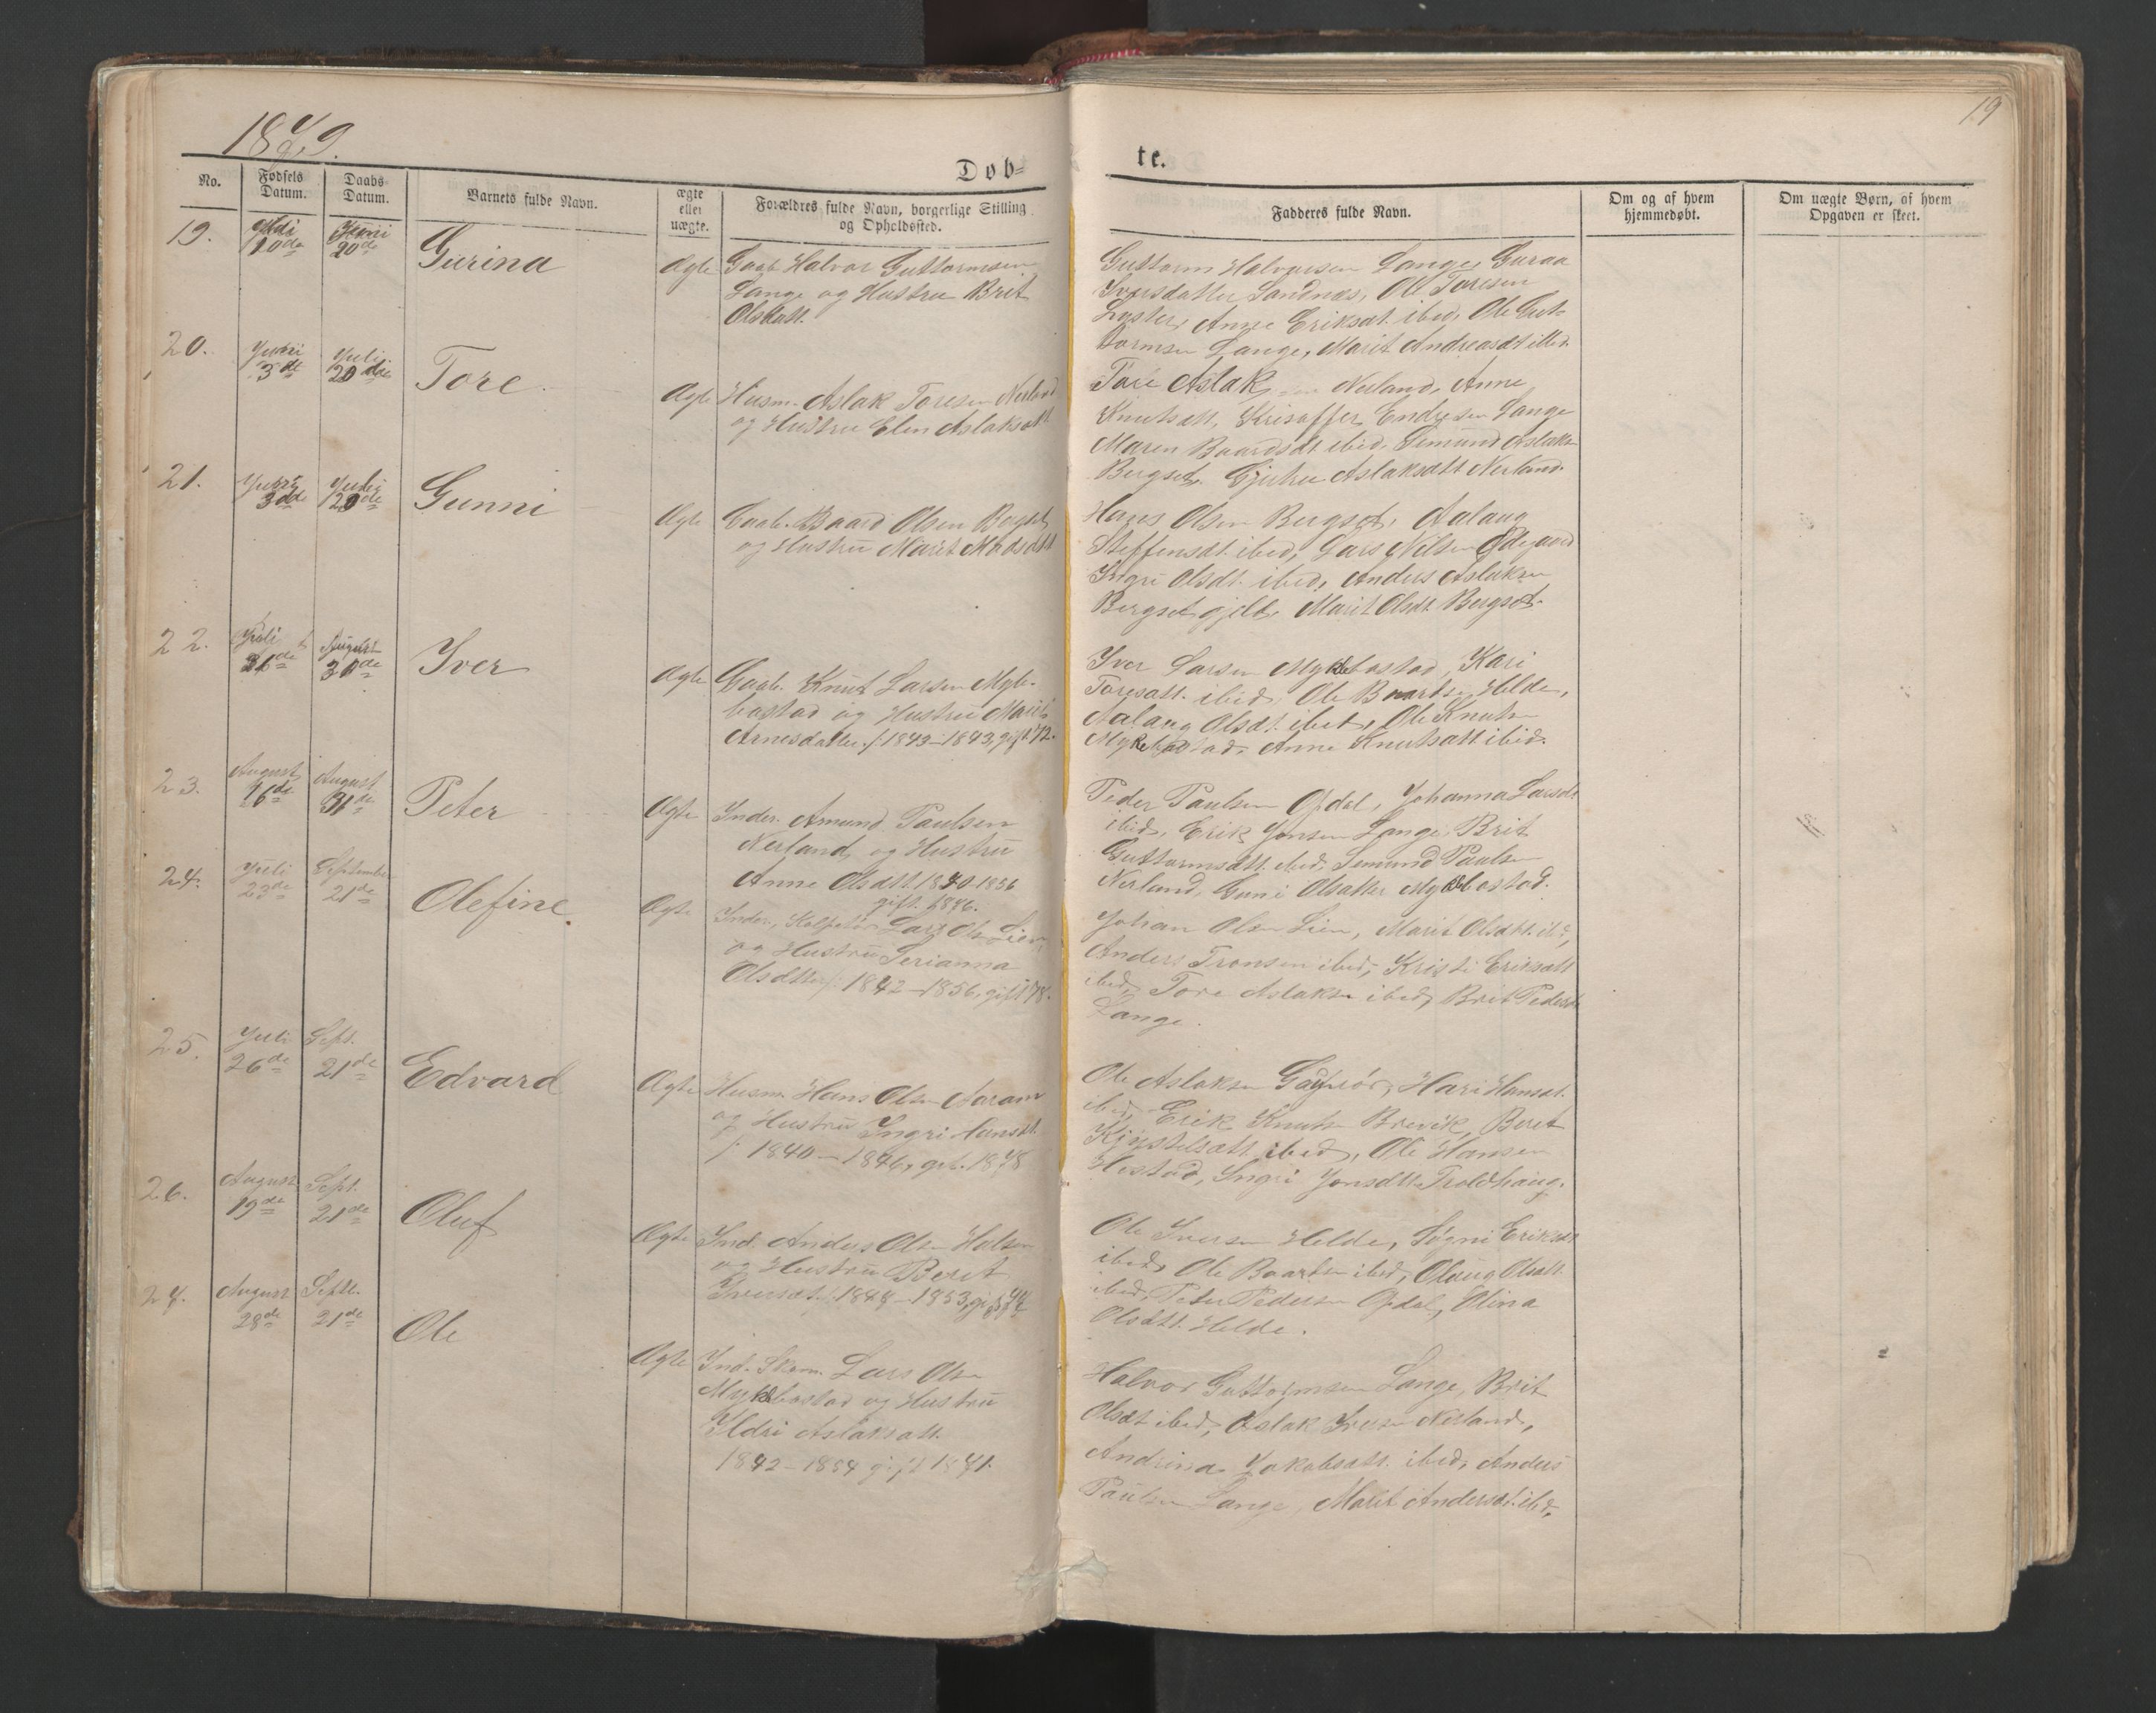 1879.
19
Døb-
te.
No.
Fødsels Datum.
Daabs Datum.
Barnets fulde Navn.
ægte eller uægte.
Forældres fulde Navn, borgerlige Stilling og Opholdssted.
Fadderes fulde Navn.
Om og af hvem hjemmedøbt.
Om uægte Børn, af hvem Opgaven er skeet.
19.
10de
20de
Gurina
Ægte
Gaab. Halvor Guttormsen
Lange og Hustru Brit
Olsdatt.
Guttorm Halvorsen Lange, Guroa
Iversdatter Sandnes, Ole Toresen
Anne Eriksdt. ibid, Ole Gut-
tormsen Lange, Marit Andreasdt ibid.
20.
Juni
3de
Juli
20de
Tore
Ægte
Husm. Aslak Toresen Nerland
og Hustru Elen Aslaksdtt.
Tore Aslak Nerland, Anne
Knutsdtt, Kristoffer Endresen Lange
Maren Baardsdt ibid, Semund Aslaks.
Bergset, Aslaksdtt Nerland.
21.
Juni
3de
Juli
20de
Gunni
Ægte
Gaab. Baard Olsen Bergset
og Hustru Marit Madsdtt
Hans Olsen Bergset, Aalaug
Steffensdt. ibid, Lars Nilsen Ødegaard
Ingri Olsdt. ibid, Anders Aslaksen
Bergset Marit Olsdt. Bergset.
22.
Juli
26de
August
30de
Iver
Ægte
Gaab. Knut Larsen Myk-
bostad og Hustru Marit
Arnesdatter. /: 1843-1843, gift 72.
Iver Larsen Mykebostad, Kari
Toresdtt. ibid, Ole Baardsen Helde,
Aalaug Olsdt. ibid, Ole Knuts.
Mykebostad, Anne Knutsdtt ibid.
23.
August
16de
August
31de
Peter
Ægte
Inder. Amund Paulsen
Nerland, og Hustru
Anne Olsdtt. 1840-1856
gift. 1876.
Peder Paulsen Opdal, Johanna Larsdt
ibid, Erik Jonsen Lange, Brit
Guttormsdtt. ibid, Semund Paulsen
Nerland, Guni Olsdatter Mykebostad.
24.
Juli
23de
September
21de
Olefine.
Ægte
Inder., Lars Ols. Lien
og Hustru Serianna
Olsdtter /: 1842-1856, gift 78.
Johan Olsen Lien, Marit Olsdtt. ibd,
Anders Tronsen ibid, Kristi Eriksdtt
ibid, Tore Aslaksen ibid, Brit Pedersdt
Lange.
25.
Juli
26de
Sept.
21de
Edvard
Ægte
Husm. Hans Olsen Aaram
og Hustru Ingri Hansdt.
/: 1840-1846, gift. 1878
Ole Aslaksen Kari Hansdt.
ibid, Erik Knutsen Brevik, Beret
ibid, Ole Hansen
Hostad, Ingri Jonsdtt. Troldhaug.
26.
August
19de
Sept.
21de
Oluf
Ægte
Ind. Anders Olsen Holsen
og Hustru Beret
Iversdt /: 1847-1853, gift 77
Ole Iversen Helde, Søgni Eriksdt
ibid, Ole Baardsen ibid, Olaug Olsdtt.
ibid, Peter Pedersen Opdal, Olina
Olsdtt. Helde.
27.
August
28de
Septr.
21de
Ole
Ægte
Ind. Skom. Lars Olsen
Mykebostad og Hustru
Ildri Aslaksdtt.
1842-1854 gift 1871.
Halvor Guttormsen Lange, Brit
Olsdt ibid, Aslak Iversen Nerland,
Andrina Jakobsdtt. ibid, Anders
Paulsen Lange, Marit Andersdt. ibid.